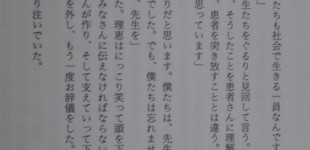 たちも社会で生きる一員なんです
生たちをぐるりと見回して言う。
、そうしたことを患者さんに理解
、患者を突き放すこととは違う。
思っています」
りだと思います。僕たちは、先生
でした。でも、僕たちは忘れませ
、先生を」
た。理恵はにっこり笑って頭を下
みなさんに伝えなければならない
んが作り、そして支えていって下
を外し、もう一度お辞儀をした。
り注いでいた。